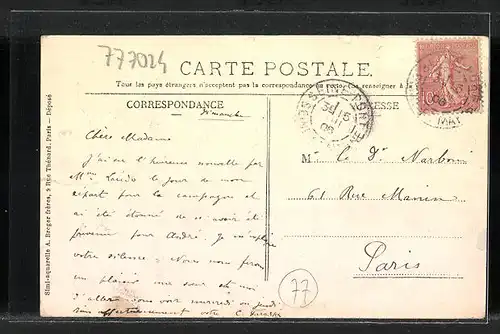 777024
CARTE POSTALE.
Tous les pays étrangers n'acceptent pas la correspondance au recto. (se renseigner à la
CORRESPONDANCE
ADRESSE
Dimanche
Chère Madame
J'ai eu l'heureuse nouvelle par
Mme le jour de mon
départ pour la campagne et
ai été étonné de n'avoir été
prévenue pour André. Je
votre silence. Nous nous ferons
un plaisir ma sœur et moi
d'aller vous voir mercredi ou jeudi
bien affectueusement votre C.
Mr le Dr Narboni
61 Rue Manin
Paris
77
10
MAI
Simi-aquarelle A. Breger frères, 9 Rue Thénard, Paris — Déposé